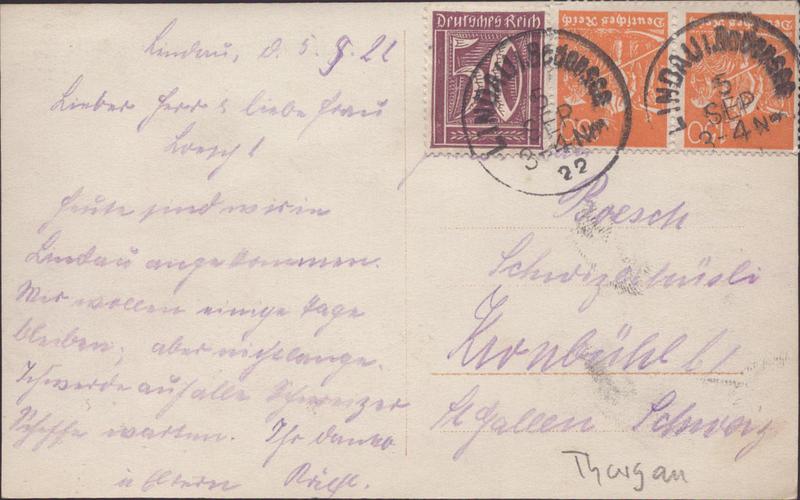 Lindau, d. 5. 9. 22
Lieber Herr & liebe Frau
Boesch!
Heute sind wir in
Lindau angekommen.
Wir wollen einige Tage
bleiben, aber nicht lange.
Ich werde auf alle Schweizer
Schiffe warten. Ihr
Deutsches Reich
75
Deutsches Reich
150
Deutsches Reich
150
LINDAU i. Bodensee
5
SEP
3-4 Nm
22
LINDAU i. Bodensee
5
SEP
3-4 Nm
Boesch
Schwizerhüsli
Kronbühl b/
St Gallen Schweiz
Thurgau